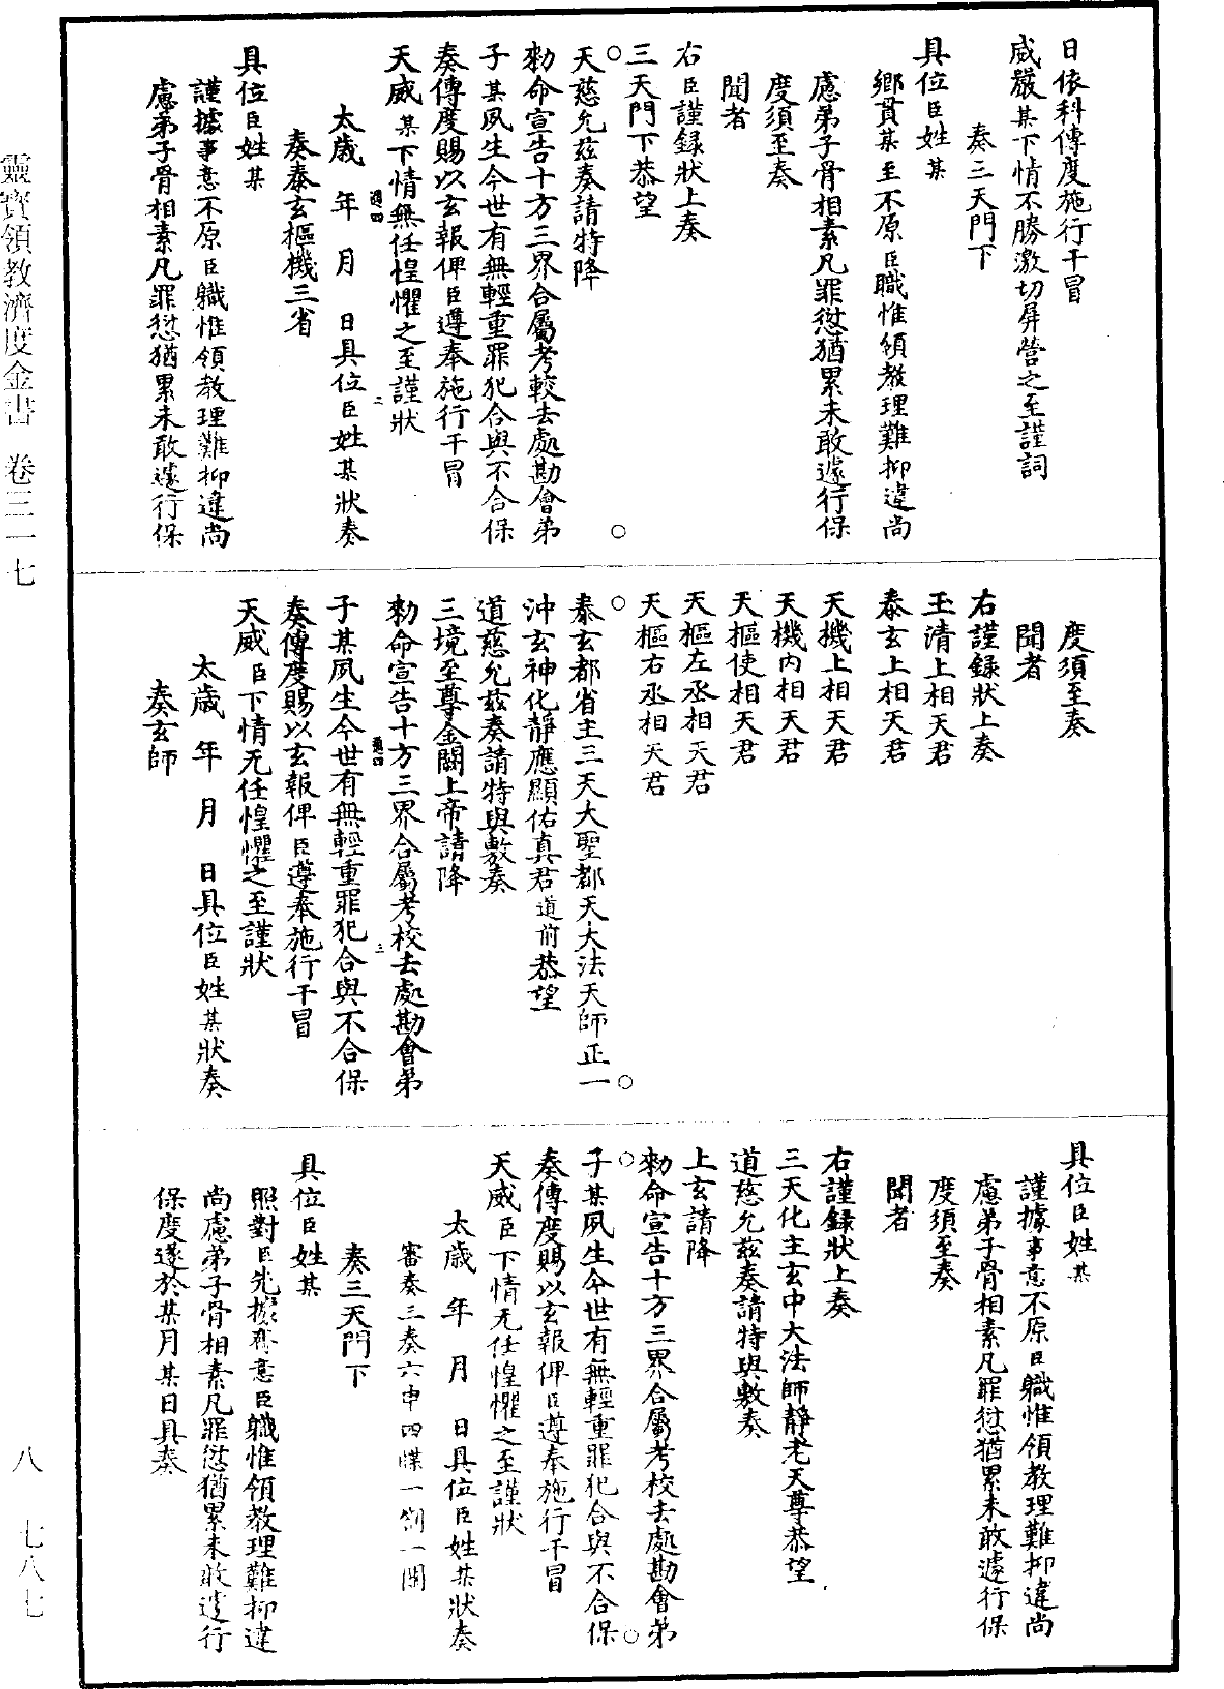 日依科傳度施行干冒
威嚴某下情不勝激切屏營之至謹詞
奏三天門下
具位臣姓某
鄉貫某至不原臣職惟領教理難抑違尚
慮弟子骨相素凡罪愆猶累未敢遽行保
度須至奏
聞者
右臣謹録狀上奏
三天門下恭望
天慈允兹奏請特降
勑命宣告十方三界合屬考較去處勘會弟
子某夙生今世有無輕重罪犯合與不合保
奏傳度賜以玄報俾臣遵奉施行干冒
天威某下情無任惶懼之至謹狀
太歲年月日具位臣姓某狀奏
奏泰玄樞機三省
具位臣姓某
謹據事意不原臣職惟領教理難抑違尚
慮弟子骨相素凡罪愆猶累未敢遽行保
度須至奏
聞者
右謹録狀上奏
玉清上相天君
泰玄上相天君
天機上相天君
天機內相天君
天樞使相天君
天樞左丞相天君
天樞右丞相天君
泰玄都省主三天大聖都天大法天師正一
沖玄神化靜應顯佑真君道前恭望
道慈允兹奏請特與敷奏
三境至尊金闕上帝請降
勑命宣告十方三界合屬考校去處勘會弟
子某夙生今世有無輕重罪犯合與不合保
奏傳度賜以玄報俾臣遵奉施行干冒
天威臣下情无任惶懼之至謹狀
太歲年月日具位臣姓某狀奏
奏玄師
具位臣姓某
謹據事意不原臣職惟領教理難抑違尚
慮弟子骨相素凡罪愆猶累未敢遽行保
度須至奏
聞者
右謹録狀上奏
三天化主玄中大法師靜老天尊恭望
道慈允兹奏請特與敷奏
上玄請降
勑命宣告十方三界合屬考校去處勘會弟
子某夙生今世有無輕重罪犯合與不合保
奏傳度賜以玄報俾臣遵奉施行干冒
天威臣下情无任惶懼之至謹狀
太歲年月日具位臣姓某狀奏
審奏三奏六申四牒一劄一關
奏三天門下
具位臣姓某
照對臣先據齊意臣職惟領教理難抑違
尚慮弟子骨相素凡罪愆猶累未敢遽行
保度遂於某月某日具奏
靈寶領教濟度金書 卷三一七
八 七八七